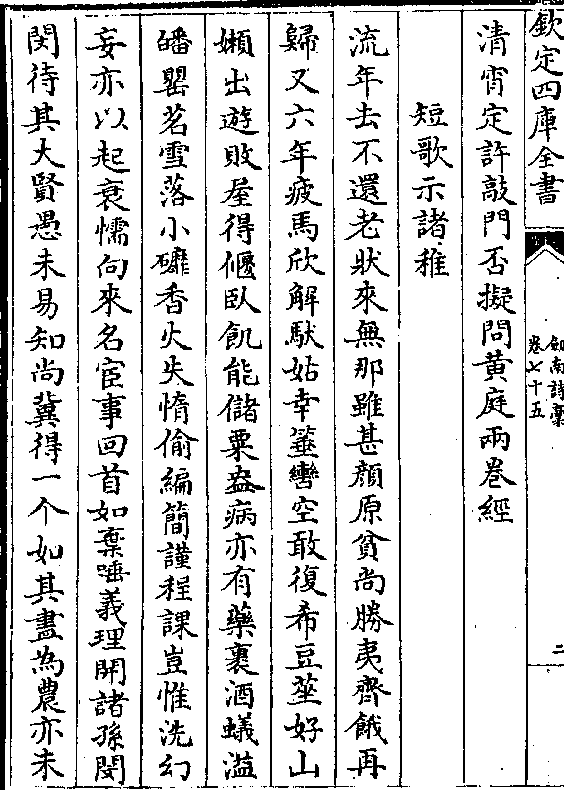 欽定四庫全書
劍南詩藁
卷七十五
二
清宵定許敲門否擬問黄庭兩卷經
短歌示諸稚
流年去不還老狀來無那雖甚顔原貧尚勝夷齊餓再
歸又六年疲馬欣解馱姑幸簞轡空敢復希豆莝好山
嬾出遊敗屋得偃臥飢能儲粟盎病亦有藥裹酒蟻溢
皤罌茗雪落小磨香火失惰偷編簡謹程課豈惟洗幻
妄亦以起衰懦向來名宦事回首如棄唾義理開諸孫閔
閔待其大賢愚未易知尚冀得一个如其盡為農亦未